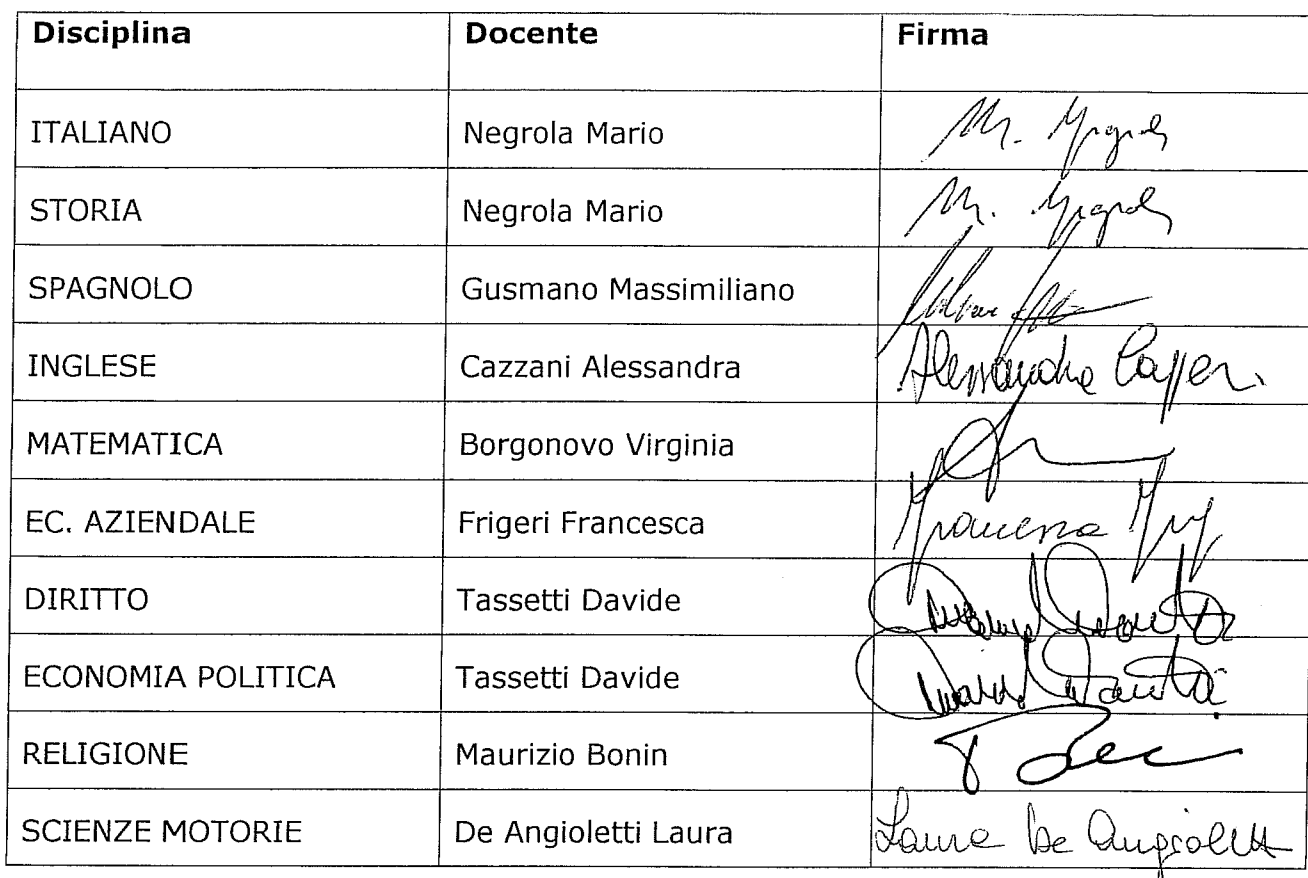 Disciplina Docente Firma
ITALIANO Negrola Mario
STORIA Negrola Mario
SPAGNOLO Gusmano Massimiliano
INGLESE Cazzani Alessandra Alessandra
MATEMATICA Borgonovo Virginia
EC. AZIENDALE Frigeri Francesca Francesca
DIRITTO Tassetti Davide
ECONOMIA POLITICA Tassetti Davide
RELIGIONE Maurizio Bonin
SCIENZE MOTORIE De Angioletti Laura Laura De Angioletti